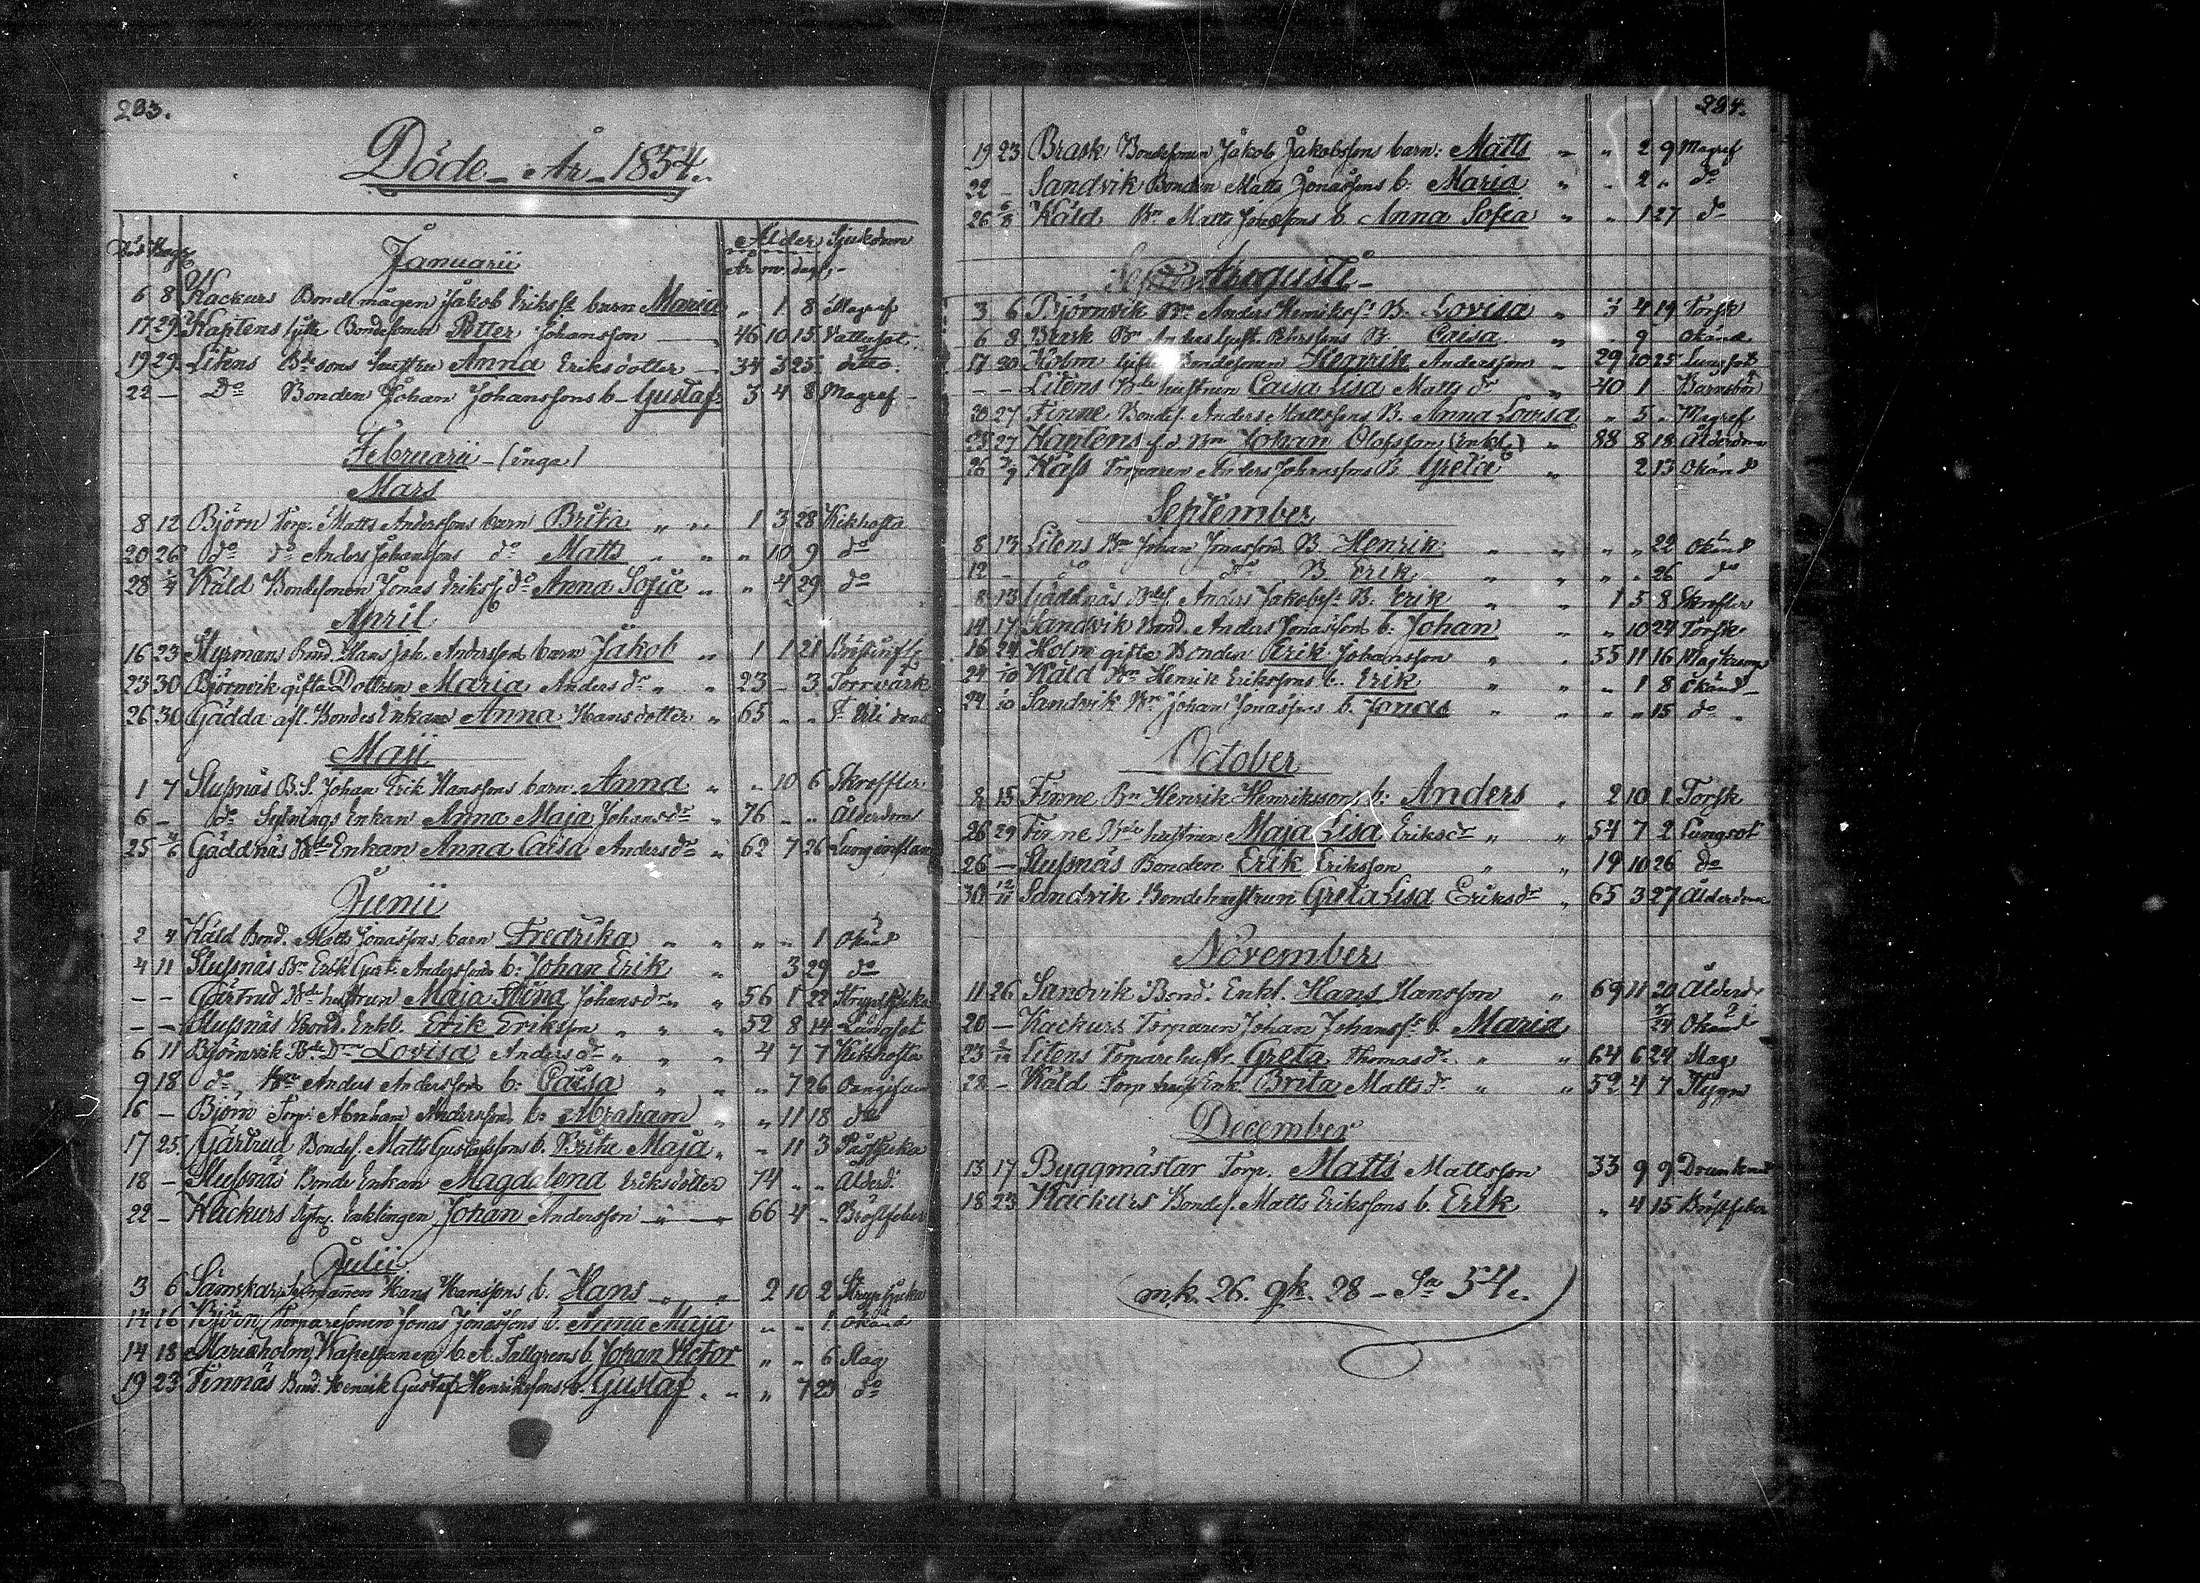 283.
Döde - År - 1854.
Död Begr. Ålder Sjukdom
År m. dag.
Januarii
6 8 Kackurs Bondemågen Jakob Erikss. barn Maria „ 1 8 Magref
17 29 Kaptens gifte Bondesonen Petter Johansson 46 10 15 Vattusot
19 29 Litens Bde sons hustru Anna Eriksdotter 34 3 25 ditto
22 – Do Bonden Johan Johanssons b. Gustaf 3 4 8 Magref
Februarii – (inga)
Mars
8 12 Björn Torp. Matts Anderssons barn Brita „ „ 1 3 28 Kikhosta
20 26 do do Anders Johanssons do Matts „ „ „ 10 9 do
28 2/4 Käld Bondesonen Jonas Erikss. do Anna Sofia „ „ 4 29 do
April
16 23 Styrmans Bond. Hans Joh. Anderssons barn Jakob „ 1 1 21 Bröstinfl.
23 30 Björnvik gifta Dottren Maria Anders dr „ „ 23 – 3 Torrvärk
26 30 Gädda afl. Bondes Enkan Anna Hansdotter „ 65 „ „
Maji
1 7 Slussnäs B.S. Johan Erik Hanssons barn Anna „ „ 10 6 Skroffler
6 – do Sytnings Enkan Anna Maja Johansdr „ 76 – „ Ålderdom
25 4/6 Gäddnäs Bde Enkan Anna Caisa Andersdr „ 62 7 26 Lunginflam
Junii
2 4 Käld Bond. Matts Jonassons barn Fredrika „ „ „ „ 1 Okänd
4 11 Slussnäs Bn Erik Gust. Anderssons b: Johan Erik „ 3 29 do
– – Gärtrud Bde hustrun Maja Stina Johansdr „ „ 56 1 22
– – Slussnäs Bond. Enkl. Erik Eriksson „ „ „ 52 8 14 Lungsot
6 11 Björnvik Bde Drn Lovisa Andersdr „ „ „ 4 7 7 Kikhosta
9 18 do Bn Anders Anderssons b: Caisa „ „ „ 7 26
16 – Björn Torp. Abraham Anderssons b: Abraham „ „ 11 18 do
17 25 Gärtrud Bondes. Matts Gustafssons b. Brita Maja „ – 11 3
18 – Slussnäs Bonde Enkan Magdalena Eriksdotter 74 „ „ Ålderd.
22 – Kackurs Sytng. Enklingen Johan Andersson 66 4 – Bröstfeber
Julii
3 6 Sämskar Hans Hanssons b. Hans „ „ 2 10 2 Strypsjuka
14 16 Björn Torparesonen Jonas Jonassons b. Anna Maja „ – 1 Okänd
14 18 Mariæholm, Kapellanen b. A. Tallgrens b. Johan Victor „ „ 6 Slag
19 23 Finnäs Bond. Henrik Gustaf Henrikssons b. Gustaf „ „ „ 7 23 do
284.
19 23 Brask Bondesonen Jakob Jakobssons barn: Matts „ „ 2 9 Magref
22 – Sandvik Bonden Matts Jonassons b. Maria „ „ 2 „ do
26 6/8 Käld Bn Matts Jonassons b. Anna Sofia „ „ 1 27 do
Augusti
3 6 Björnvik Bn Anders Henrikss. B. Lovisa „ 4 19 Torsk
6 8 Brask Bn Anders Gust. Pehrssons B. Caisa „ „ 9 Okänd
17 20 Holm gifte Bondesonen Henrik Andersson „ 29 10 25 Lungsot
– – Litens Bde hustrun Caisa Lisa Matts dr „ 40 1 – Barnsbörd
20 27 Finne Bondes. Anders Mattssons B. Anna Lovisa „ 5 „ Magref
25 27 Kaptens f.d. Bn Johan Olofsson (Enkl.) „ 88 8 18 Ålderdom
26 3/9 Käss Torparen Anders Johanssons B. Greta „ 2 13 Okänd
September
8 13 Litens Bn Johan Jonassons B. Henrik „ „ „ „ 22 Okänd
12 – do do B. Erik „ „ „ „ 26 do
8 13 Gäddnäs Bdes. Anders Jakobss. B. Erik „ „ 1 5 8 Skroffler
14 17 Sandvik Bond. Anders Jonassons b. Johan „ „ 10 24 Torsk
16 24 Holm gifte Bonden Erik Johansson „ „ 55 11 16
24 1/10 Käld Bn Henrik Erikssons b. Erik „ „ „ 1 8 Okänd
24 1/10 Sandvik Bn Johan Jonassons b. Jonas „ „ „ „ 15 do
October
8 15 Finne Bn Henrik Henrikssons b: Anders „ 2 10 1 Torsk
26 29 Finne Bde hustrun Maja Lisa Eriksdr „ „ 54 7 2 Lungsot
26 – Slussnäs Bonden Erik Eriksson „ „ 19 10 26 do
30 12/11 Sandvik Bondehustrun Greta Lisa Eriksdr „ 65 3 27 Ålderdom
November
11 26 Sandvik Bond. Enkl. Hans Hansson „ 69 11 20 Ålderd.
20 – Kackurs Torparen Johan Johanss. b. Maria Okänd
23 3/12 Litens Torparehustr. Greta Thomasdr „ „ 64 6 24 Mag
28 – Käld Torp. Enk. Brita Matts dr „ „ 52 4 7 Stygn
December
13 17 Byggmästar Torp. Matts Mattsson 33 9 9 Drunknad
18 23 Kackurs Bondes. Matts Erikssons b. Erik „ 4 15 Bröstfeber
mk. 26. qk. 28 – Sa 54.